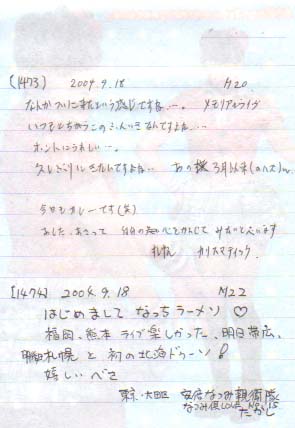 (1473) 2004.9.18 M20
なんかついに来たという感じですね…。 メモリアルライブ
いつもとちがうこの
ホントにうれしい…。
久しぶりに なんですよね… あの 3月以来(のハズ)
今日もカレーです(笑)
あした、あさって 自分の をかんじて みたいと思います
カリスマティック
[1474] 2004.9.18 M22
はじめまして なっちラーメン♡
福岡、熊本ライブ楽しかった、明日帯広、
明後日札幌と初の北海ドゥーソ!
嬉しいべさ
東京・大田区 安倍なつみ親衛隊
なつみ倶LOVE No.15
たかし